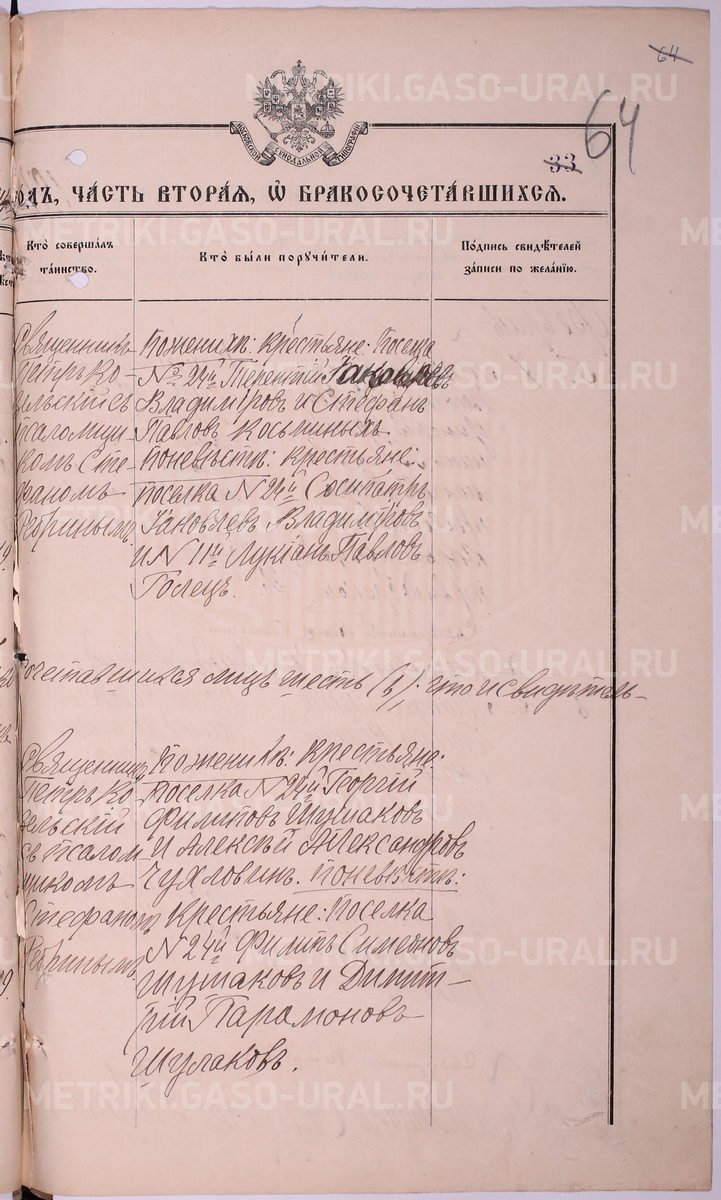 64
64
МОСКОВСКОЙ СѴНОДАЛЬНОЙ ТИПОГРАФІИ
33
ГОДЪ, ЧАСТЬ ВТОРАЯ, Ѿ БРАКОСОЧЕТАВШИХСЯ.
Кто совершалъ таинство.
Кто были поручители.
Подпись свидѣтелей записи по желанію.
Священникъ
Петръ Ко-
зельскій съ
псаломщи
комъ Сте
фаномъ
Ребринымъ
Поженихѣ: крестьяне: Поселка
№ 24й Терентій Іаковлевъ
Владиміровъ и Стефанъ
Павловъ Косьминыхъ
Поневѣстѣ: крестьяне:
поселка № 24й Сосипатръ
Іаковлевъ Владиміровъ
и № 11й Лукіанъ Павловъ
Голецъ.
сочетавшихся лицъ шесть (6), что и свидѣтель-
Священникъ
Петръ Ко
зельскій
съ псалом
щикомъ
Стефаномъ
Ребринымъ
Поженихѣ: Крестьяне:
поселка № 24й Георгій
Филиповъ Шушаков
и Алексѣй Александровъ
Чухловинъ. поневѣстѣ:
Крестьяне: поселка
№ 24й Филипъ Симеоновъ
Шушаковъ и Димит-
рій Парамоновъ
Шулаковъ.
METRIKI.GASO-URAL.RU